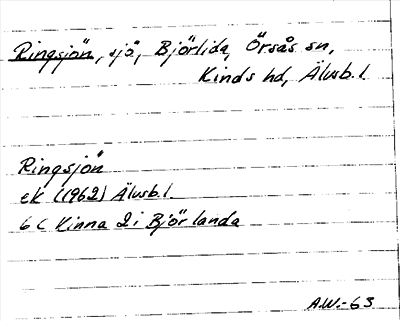 Ringsjön, sjö, Björlida, Örsås sn,
Kinds hd, Älvsb. l.
Ringsjön
ek (1962) Älvsb. l.
6 C Kinna 2 i Björlanda
A.W.-63